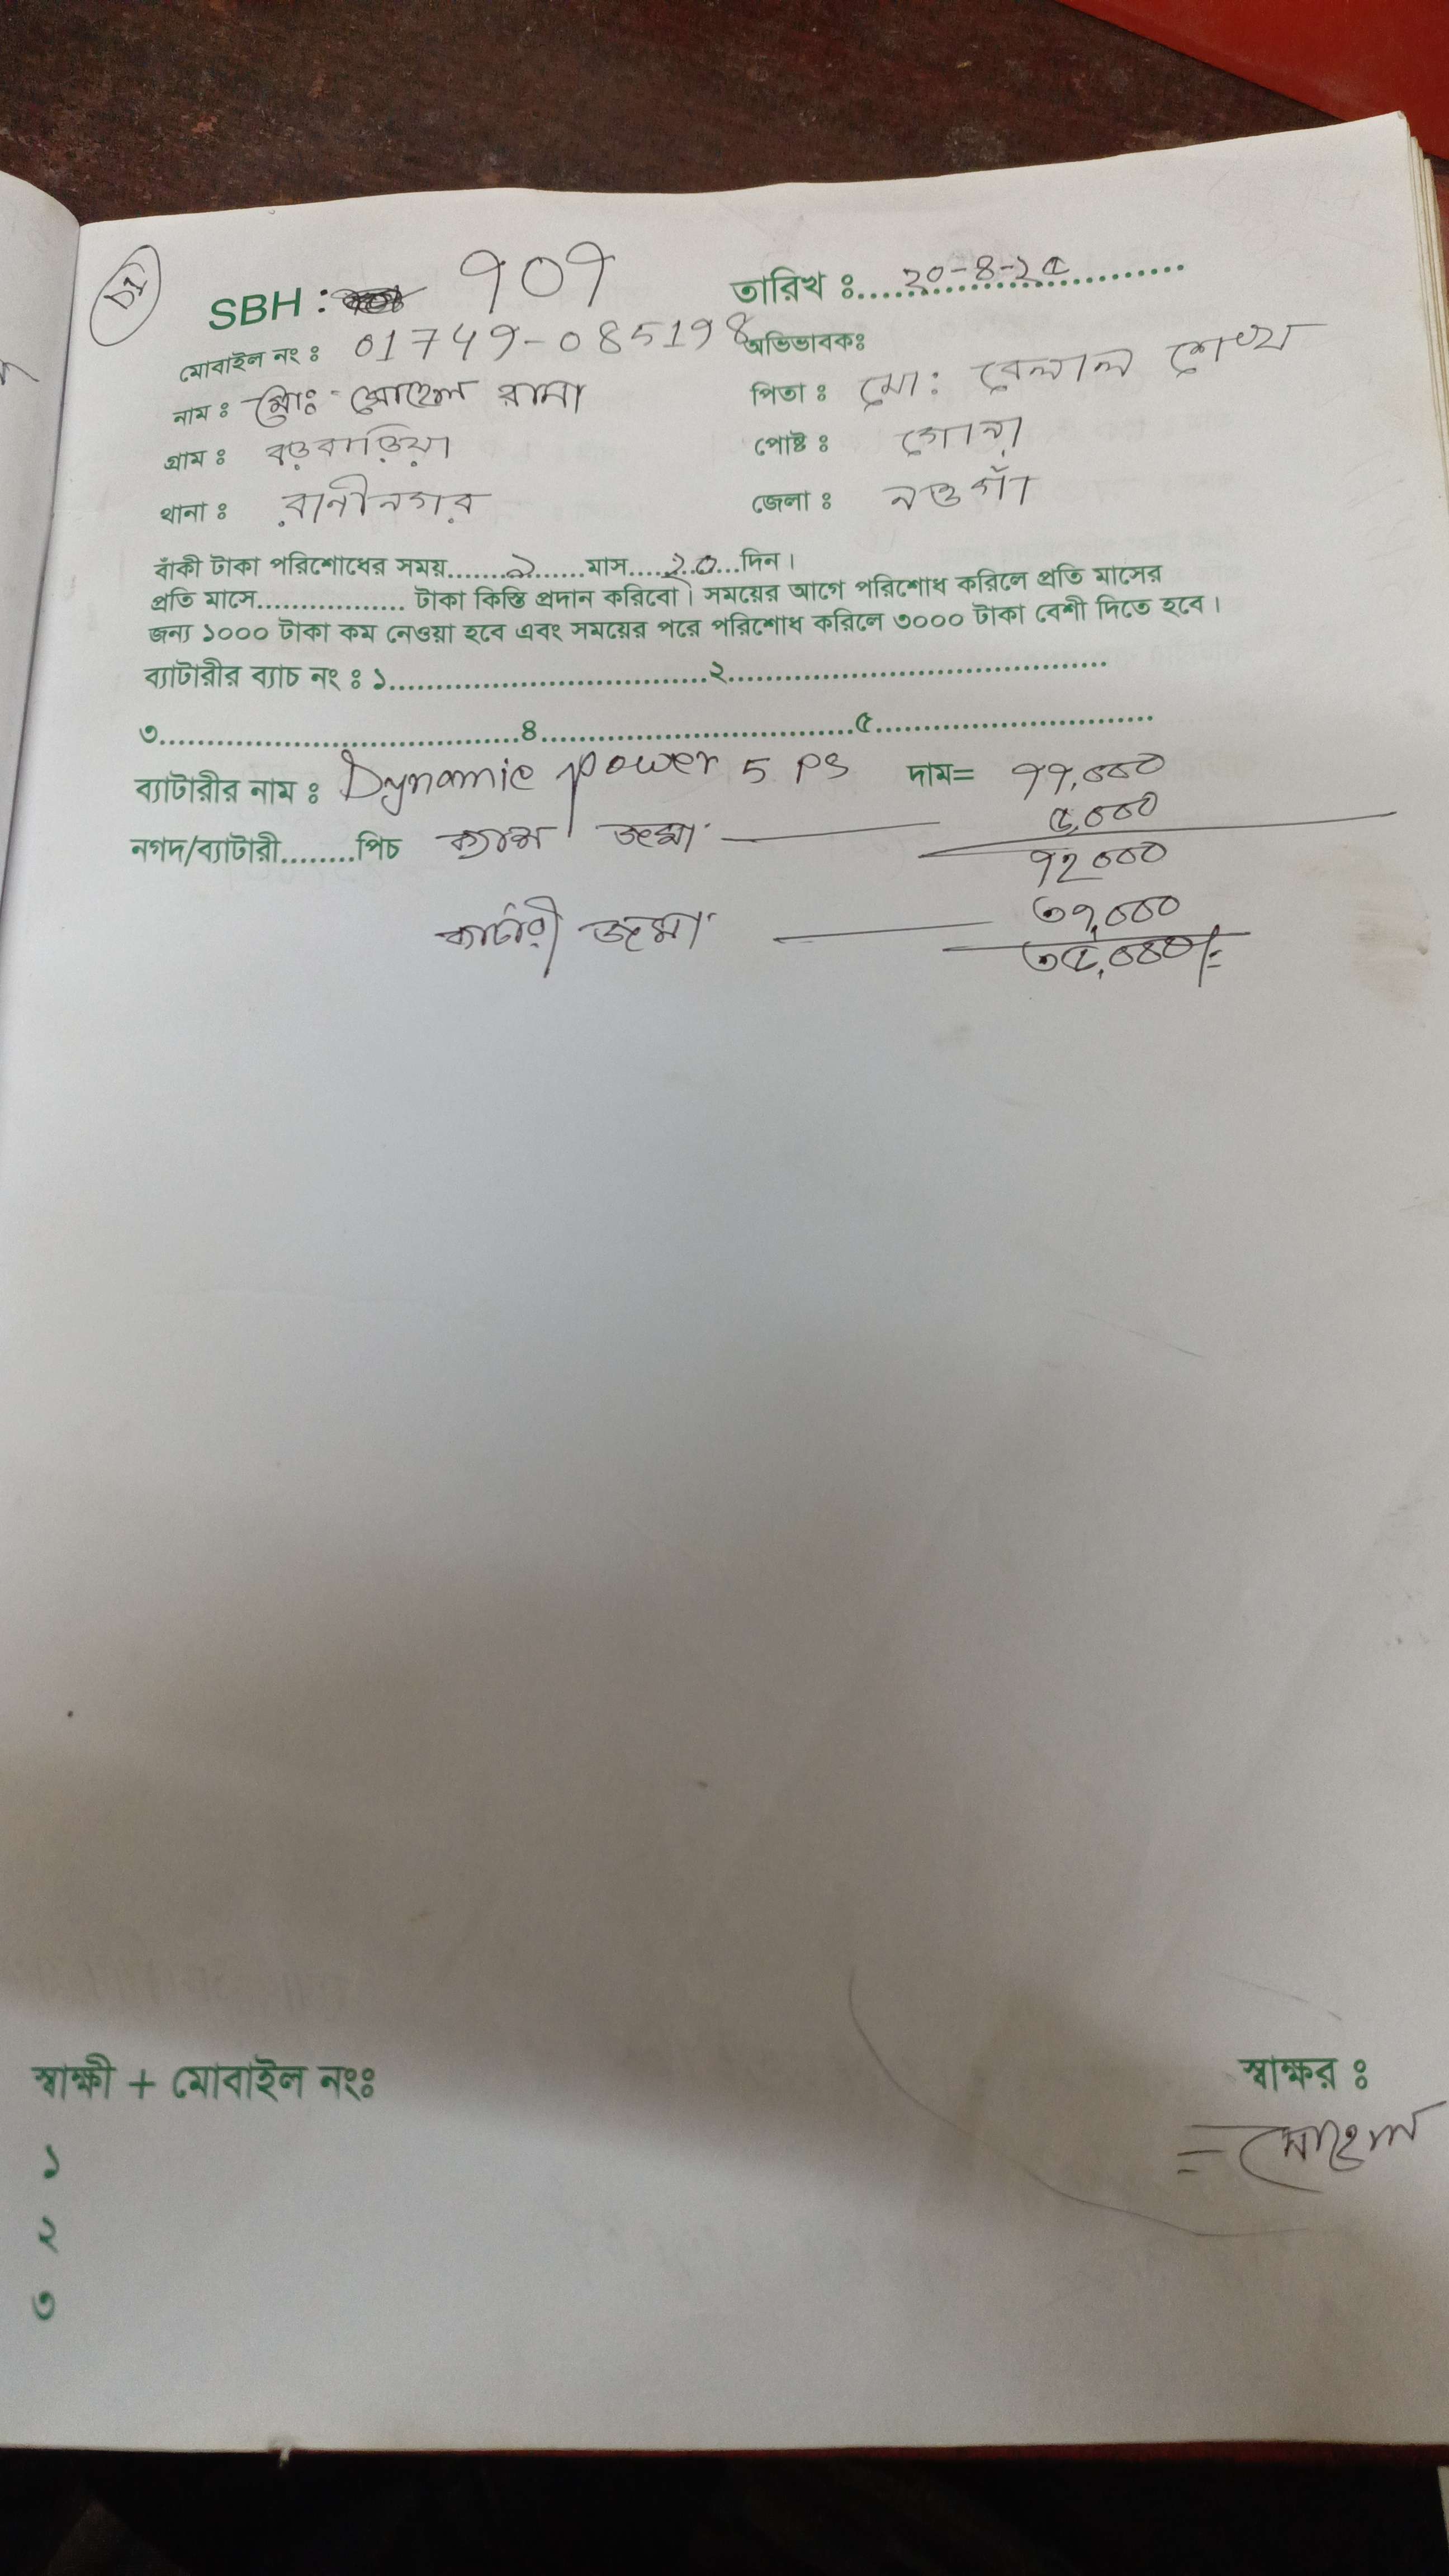 ৮১
SBH : ৭০৭
তারিখ ঃ.... ২০-৪-২৫ ..........
মোবাইল নং ঃ 01749-085198
অভিভাবকঃ
নাম ঃ মোঃ সোহেল রানা
পিতা ঃ মো: বেলাল শেখ
গ্রাম ঃ বড়বাড়িয়া
পোষ্ট ঃ গোনা
থানা ঃ রানীনগর
জেলা ঃ নওগাঁ
বাঁকী টাকা পরিশোধের সময়.......৯......মাস....২০...দিন।
প্রতি মাসে................. টাকা কিস্তি প্রদান করিবো। সময়ের আগে পরিশোধ করিলে প্রতি মাসের
জন্য ১০০০ টাকা কম নেওয়া হবে এবং সময়ের পরে পরিশোধ করিলে ৩০০০ টাকা বেশী দিতে হবে।
ব্যাটারীর ব্যাচ নং ঃ ১....................................২..........................................
৩........................................৪...................................৫...............................
ব্যাটারীর নাম ঃ Dynamic power 5 ps দাম= ৭৭,০০০
নগদ/ব্যাটারী........পিচ ক্যাশ জমা — ৫,০০০
৭২০০০
জমা — ৩৭,০০০
৩৫,০০০/=
স্বাক্ষী + মোবাইল নংঃ
স্বাক্ষর ঃ
১
= সোহেল
২
৩